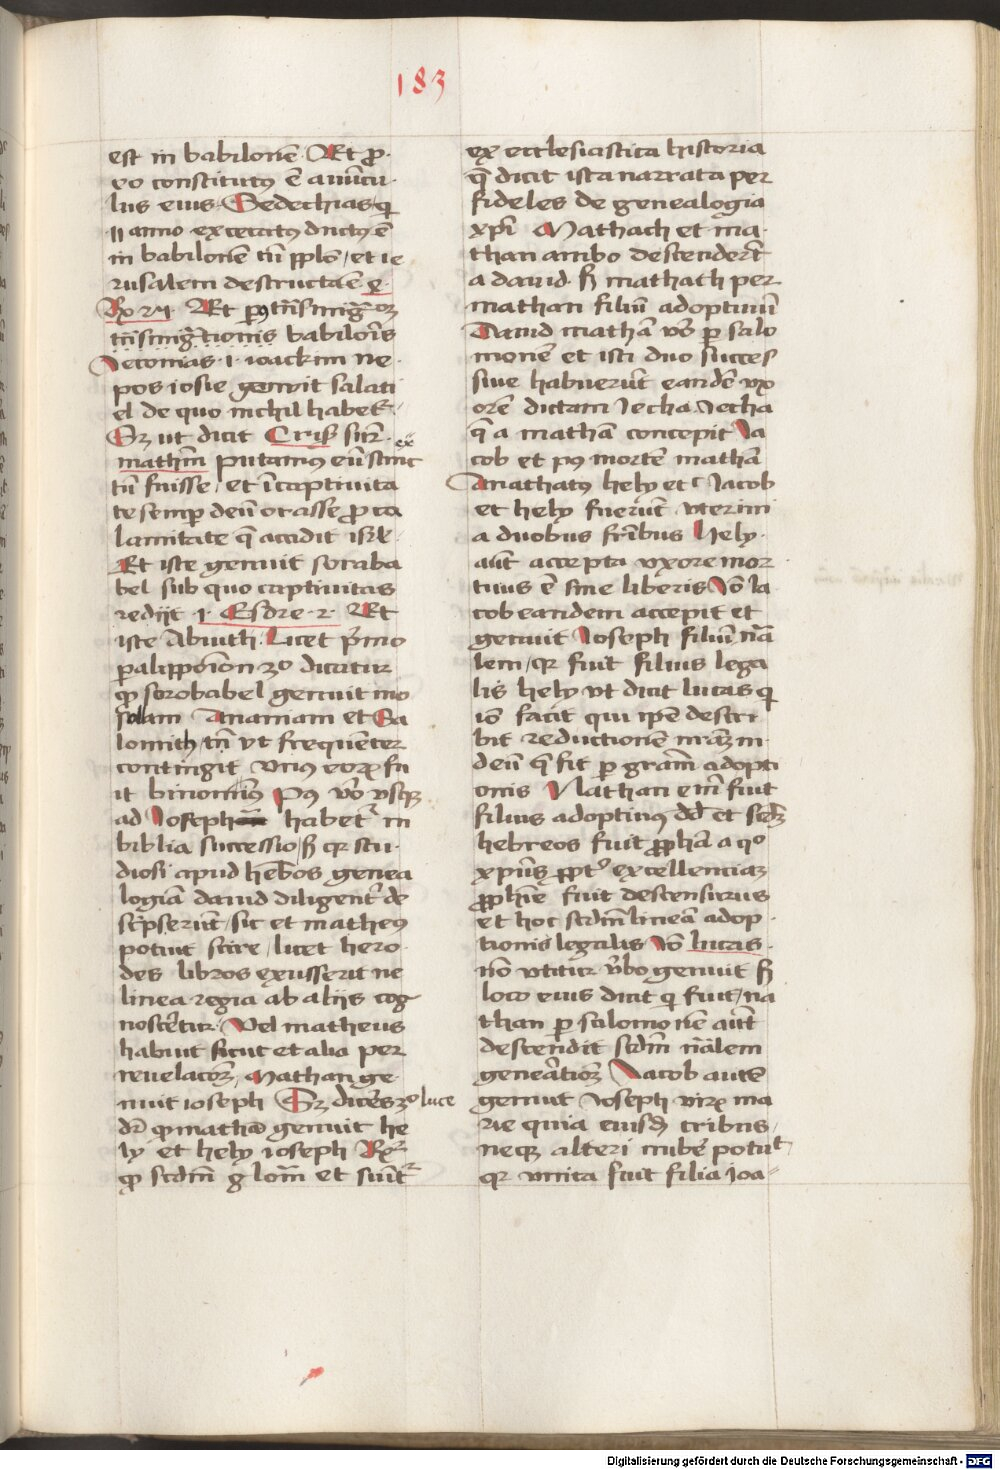 183
est in babilonē Et p̄
eo constitutꝰ ē auūcu
lus eius Sedechias q̄
11 anno excecatꝰ ductꝰ ē
in babilonē cū pplō et ie
rusalem destructa ē
Et pꝰ
babilonis
Jeconias .i. ioachim ne
pos iosie genuit salati
el de quo nichil habet̄
Sz ut dicit Cris̄ sūr
mathm̄ putamꝰ eū scm̄
tū fuisse et ī captiuita
te semp deū orasse p̄ ca
lamitate q̄ accidit isrl̄
Et iste genuit soroba
bel sub quo captiuitas
redijt .1. Esdre .2. Et
iste Abiuth Licet p̄mo
paralippōion 3o dicatur
qꝫ sorobabel genuit mo
solam Ananiam et Sa
lomith tn̄ vt frequēter
contingit vnꝰ eoꝝ fu
it binomiꝰ Pꝰ v̄o vsqꝫ
ad Joseph habet̄ in
biblia successio sꝫ qꝛ stu
diosi apud heb̄os genea
logiā dauid diligent̄ de
sc̄pserūt sic et matheꝰ
potuit scire licet hero
des libros exusserit ne
linea regia ab alijs cog
nosce̅tur Vel matheus
habuit sicut et alia per
reuelacoꝫ Mathan ge
nuit ioseph Sz dices 3o luce
dr̄ qꝫ mathā genuit he
ly et hely ioseph Rꝫ
qꝫ scdm̄ glosā et sūit̄
ex ecclesiastica historia
q̄ dicit ista narrata per
fideles de genealogia
xpi Mathach et ma
than ambo descenderūt
a dauid sꝫ mathach per
nathan filiū adoptiuū
Dauid mathā v̄o p salo
monē et isti duo succes
siue habuerūt eandē vx
orē dictam Jecha Jecha
q̄ a mathā concepit Ja
cob et pꝰ mortē mathā
A mathatꝰ hely et Jacob
et hely fuerūt vterini
a duobus fr̄ibus Hely
aūt accepta vxore mor
tuus ē sine liberis Iō Ia
cob eandem accepit et
genuit Joseph filiū nāa
lem qꝛ fuit filius lega
lis hely vt dicit lucas q̄
iō facit qui ip̄e descri
bit reductionē nr̄am in
deū q̄ fit p grām adopti
onis Nathan em̄ fuit
filius adoptiuꝰ dd̄ et scdꝫ
hebreos fuit ppham a qo
xpūs ppt̄ excellenciaꝫ
pphie fuit descensurus
et hoc scdm̄ lineā adop
tionis legalis Iō lucas
nō vtitur v̄bo genuit sꝫ
loco eius dicit q̄ fuit na
than p salomonē aūt
descendit scdm̄ nāalem
genera̅tioꝫ Jacob autē
genuit Joseph viꝝ ma
rie quia eiusdꝫ tribus
neqꝫ alteri nubē potuit
qꝛ vnita fuit filia ioa
Digitalisierung gefördert durch die Deutsche Forschungsgemeinschaft - DFG